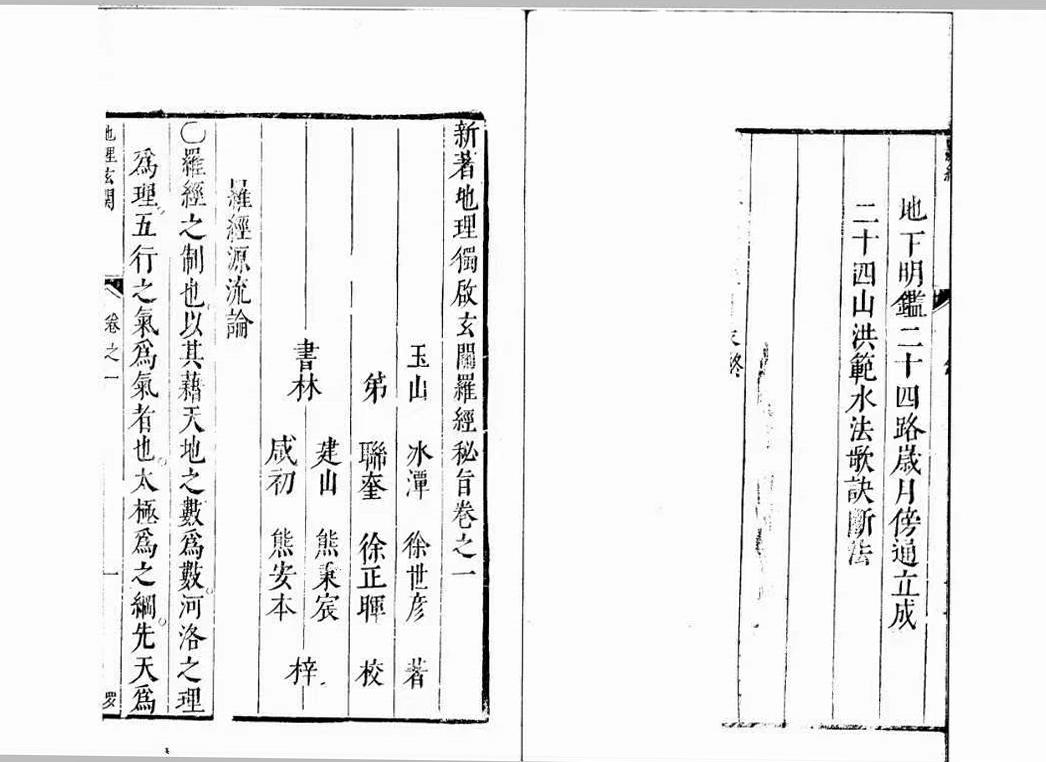 地下明鑑二十四路歲月傍通立成
二十四山洪範水法歌訣斷法
終
新著地理獨啟玄關羅經秘旨卷之一
玉山 冰潭 徐世彥 著
弟 聯奎 徐正暉 校
書林 建山 熊秉宸
咸初 熊安本 梓
羅經源流論
〇羅經之制也以其藉天地之數為數河洛之理
為理五行之氣為氣者也太極為之綱先天為
地理玄關 卷之一 一